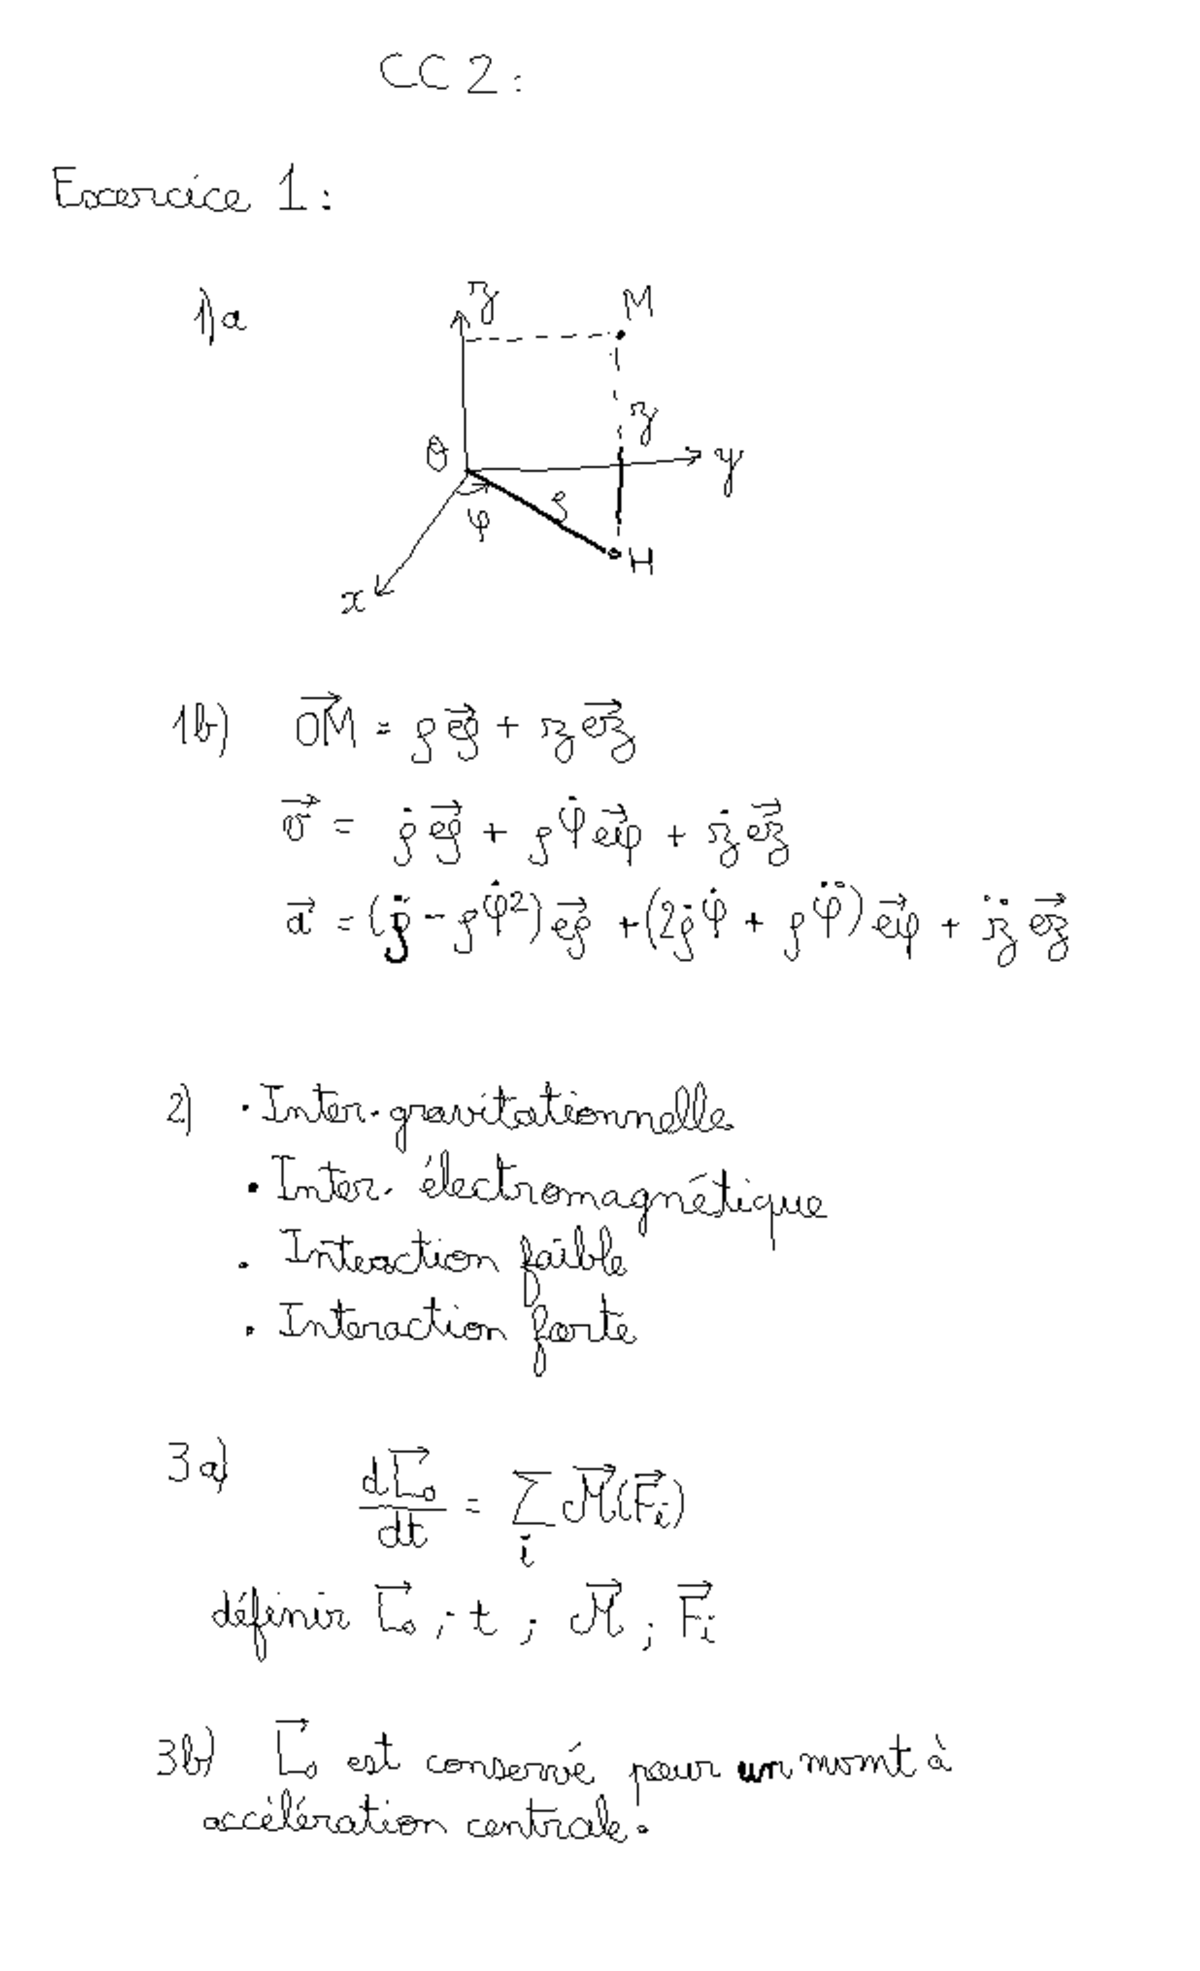 CC 2 :
Exercice 1 :
1)a
z
M
z
O
y
ρ
φ
H
x
1b) \vec{OM} = ρ\vec{eρ} + z\vec{ez}
\vec{v} = ρ̇\vec{eρ} + ρφ̇\vec{eφ} + ż\vec{ez}
\vec{a} = (ρ̈ - ρφ̇²)\vec{eρ} + (2ρ̇φ̇ + ρφ̈)\vec{eφ} + z̈\vec{ez}
2) · Inter. gravitationnelle
· Inter. électromagnétique
· Interaction faible
· Interaction forte
3a) \frac{d\vec{L_o}}{dt} = \sum_i \vec{M}(\vec{F_i})
définir \vec{L_o} ; t ; \vec{M} ; \vec{F_i}
3b) \vec{L_o} est conservé pour un mvmt à
accélération centrale.